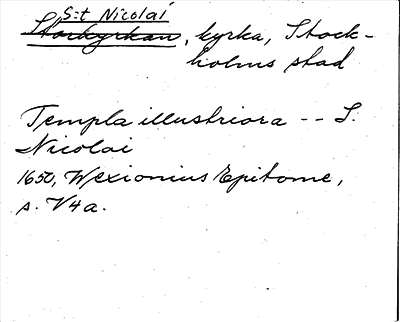 S:t Nicolai
Storkyrkan, kyrka, Stock-
holms stad
Templa illustriora -- S.
Nicolai
1650, Wexionius Epitome,
s. V4a.